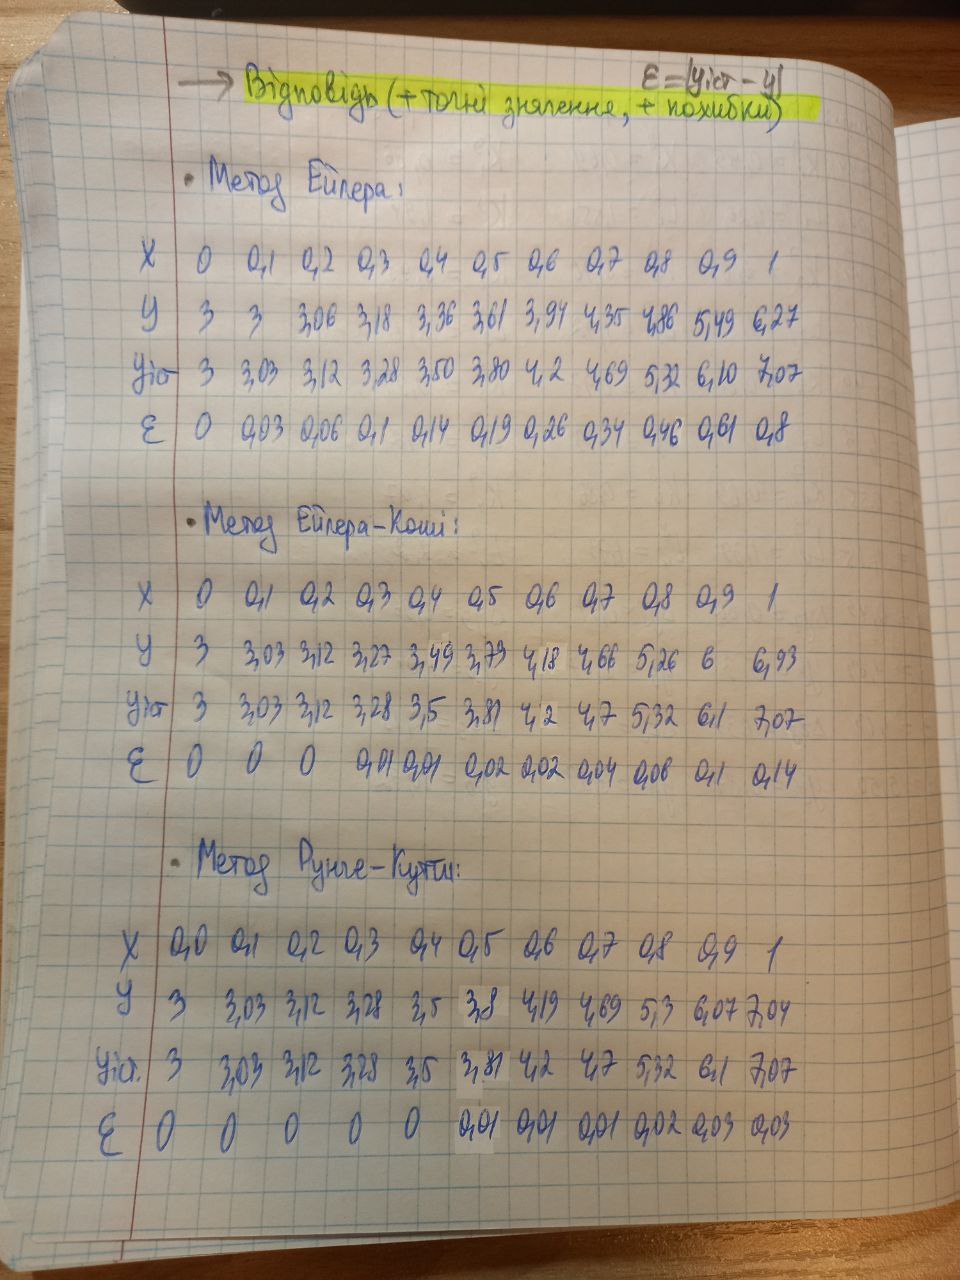 ε = |yіст - y|
→ Відповідь (+ точні значення, + похибки)
• Метод Ейлера:
x 0 0,1 0,2 0,3 0,4 0,5 0,6 0,7 0,8 0,9 1
y 3 3 3,06 3,18 3,36 3,61 3,94 4,35 4,86 5,49 6,27
yіст 3 3,03 3,12 3,28 3,50 3,80 4,2 4,69 5,32 6,10 7,07
ε 0 0,03 0,06 0,1 0,14 0,19 0,26 0,34 0,46 0,61 0,8
• Метод Ейлера-Коші:
x 0 0,1 0,2 0,3 0,4 0,5 0,6 0,7 0,8 0,9 1
y 3 3,03 3,12 3,27 3,49 3,79 4,18 4,66 5,26 6 6,93
yіст 3 3,03 3,12 3,28 3,5 3,81 4,2 4,7 5,32 6,1 7,07
ε 0 0 0 0,01 0,01 0,02 0,02 0,04 0,06 0,1 0,14
• Метод Рунге-Кутти:
x 0,0 0,1 0,2 0,3 0,4 0,5 0,6 0,7 0,8 0,9 1
y 3 3,03 3,12 3,28 3,5 3,8 4,19 4,69 5,3 6,07 7,04
yіст. 3 3,03 3,12 3,28 3,5 3,81 4,2 4,7 5,32 6,1 7,07
ε 0 0 0 0 0 0,01 0,01 0,01 0,02 0,03 0,03